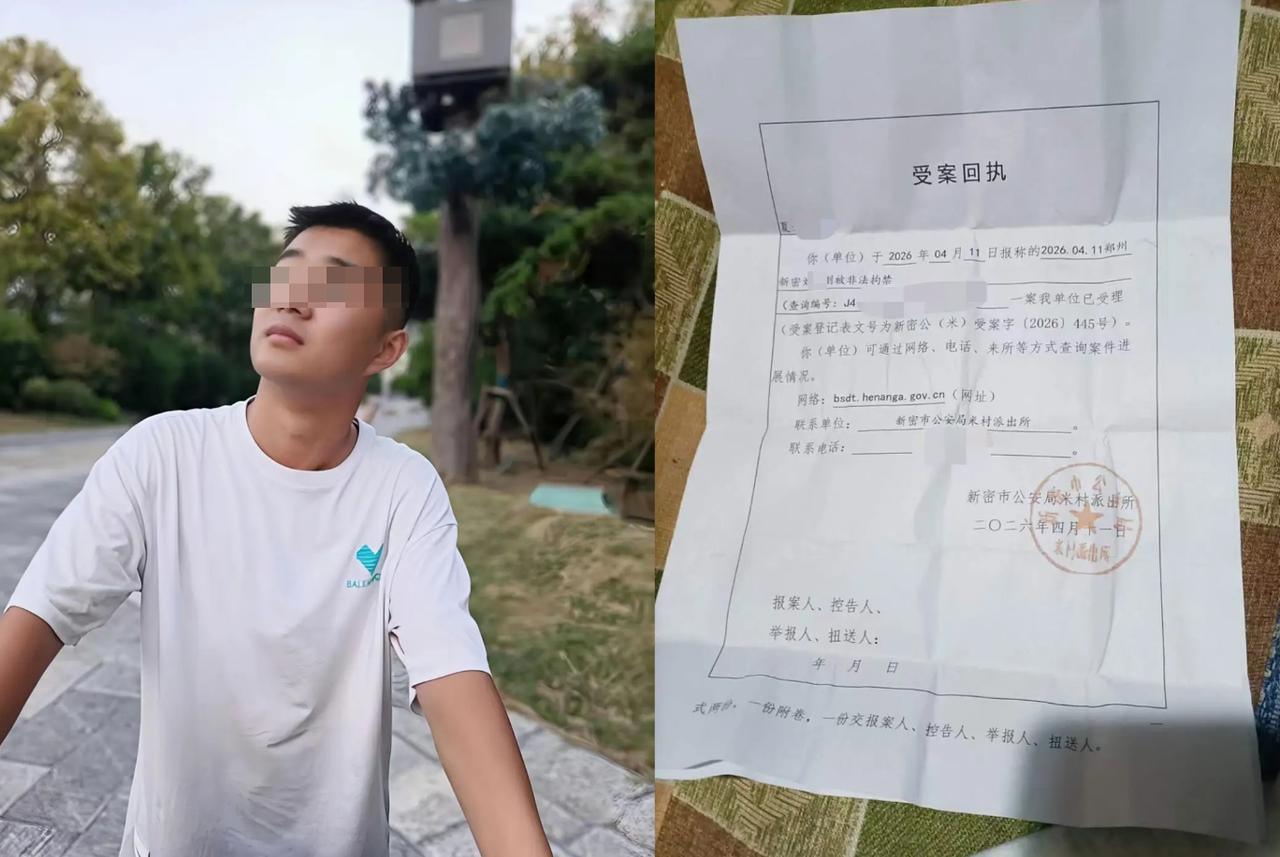 BAL
受案回执
夏:
你（单位）于 2026 年 04 月 11 日报称的2026.04.11郑州
新密 被非法拘禁
（查询编号：J4 一案我单位已受理
（受案登记表文号为新密公（米）受案字〔2026〕445号）。
你（单位）可通过网络、电话、来所等方式查询案件进
展情况。
网络：bsdt.henanga.gov.cn（网址）
联系单位： 新密市公安局米村派出所 。
联系电话： 。
新密市公安局米村派出所
二〇二六年四月十一日
市公
米村派出所
报案人、控告人、
举报人、扭送人：
年 月 日
式两份，一份附卷，一份交报案人、控告人、举报人、扭送人。